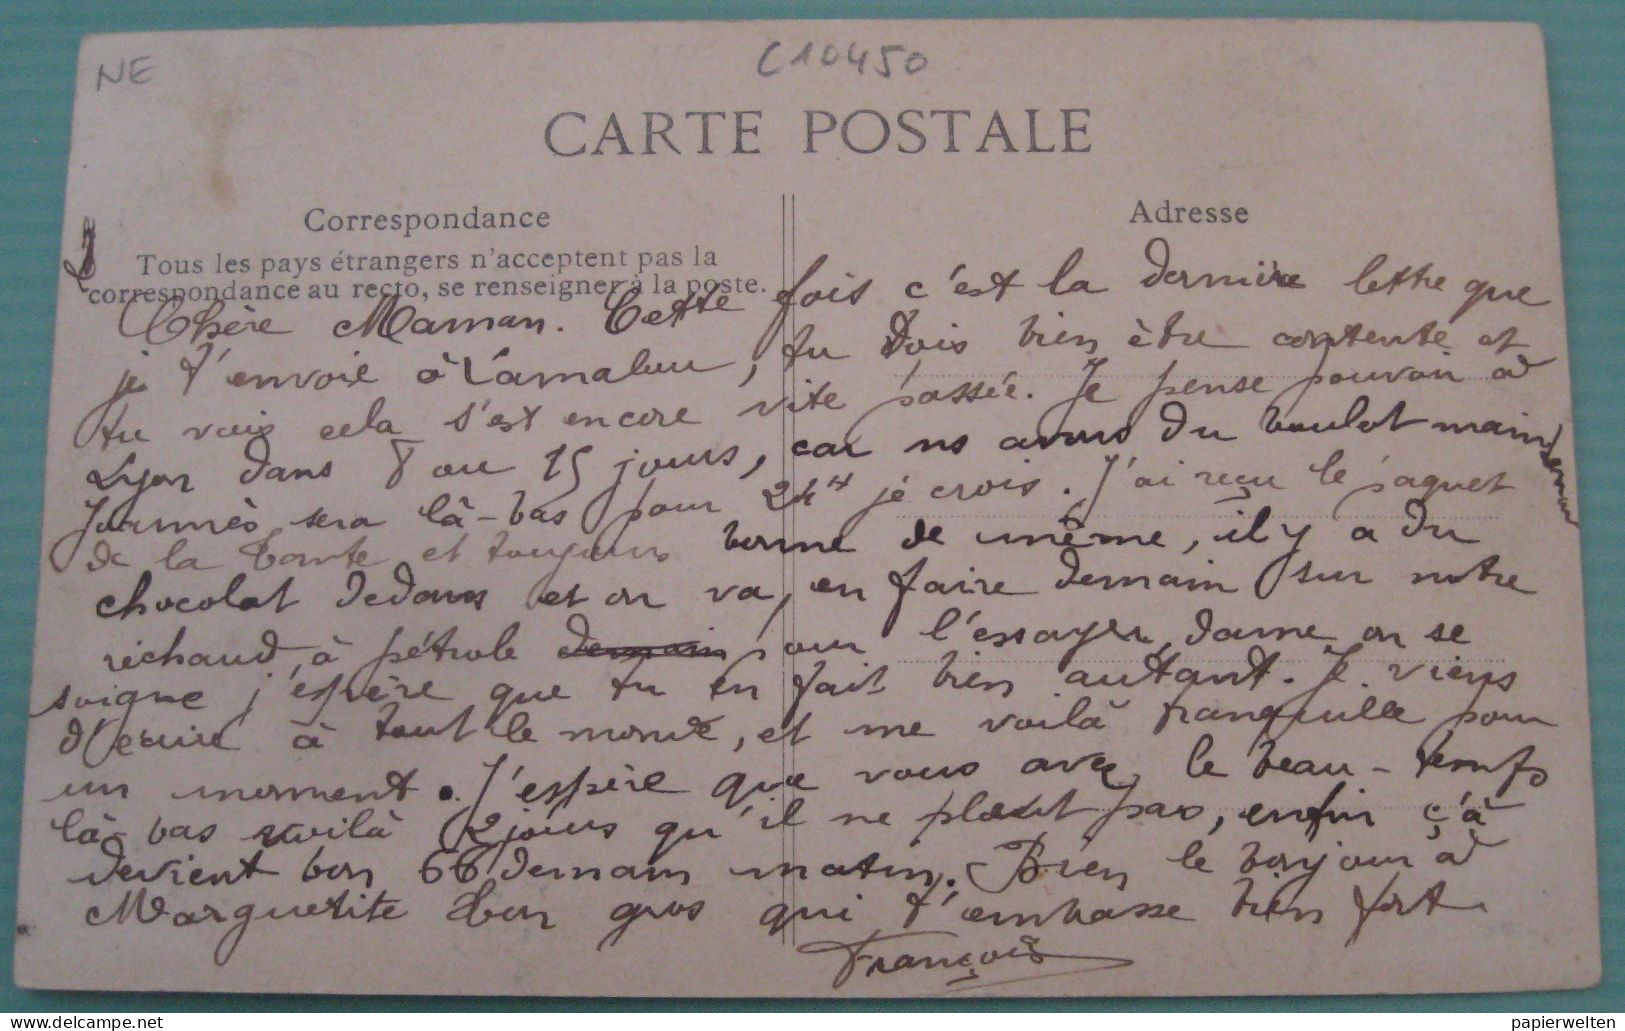 NE
C10450
CARTE POSTALE
Correspondance
Adresse
Tous les pays étrangers n'acceptent pas la
correspondance au recto, se renseigner à la poste.
Chère Maman. Cette fois c'est la dernière lettre que
je t'envoie à Lamalou, tu dois bien être contente et
tu vois cela s'est encore vite passée. Je pense pouvoir à
Lyon dans 8 ou 15 jours, car ns avons du boulot maintenant
sera là-bas pour 24H je crois. J'ai reçu le paquet
de la Tante et toujours bonne de même, il y a du
chocolat dedans et on va, en faire demain sur notre
réchaud, à pétrole demain pour l'essayer, dame on se
soigne j'espère que tu en fait bien autant. Je viens
d'écrire à tout le monde, et me voilà tranquille pour
un moment. J'espère que vous avez le beau-temps
là-bas voilà 2 jours qu'il ne pleut pas, enfin ç'à
devient bon 66 demain matin. Bien le bonjour à
Marguerite Ton gros qui t'embrasse bien fort
François
papierwelten